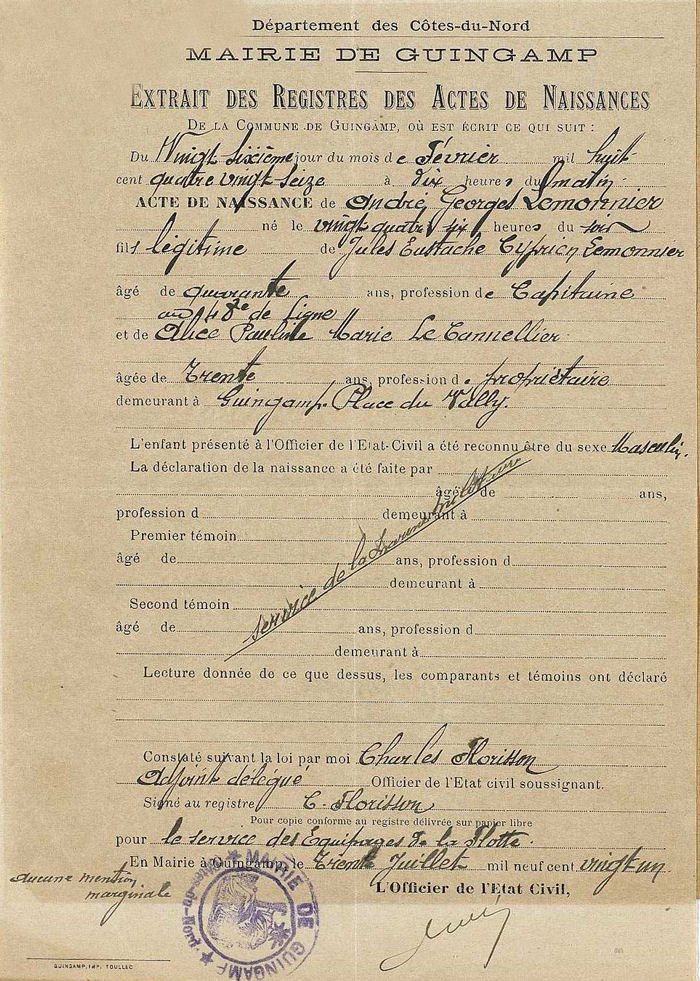 Département des Côtes-du-Nord
MAIRIE DE GUINGAMP
EXTRAIT DES REGISTRES DES ACTES DE NAISSANCES
DE LA COMMUNE DE GUINGAMP, OÙ EST ÉCRIT CE QUI SUIT :
Du Vingt sixième jour du mois de Février mil huit
cent quatre vingt seize à dix heures du matin
ACTE DE NAISSANCE de André Georges Lemonnier
né le vingt quatre six heures du soir
fils légitime de Jules Eustache Cyprien Lemonnier
âgé de quarante ans, profession de Capitaine
au 48e de Ligne
et de Alice Pauline Marie Le Cannellier
âgée de Trente ans, profession de propriétaire
demeurant à Guingamp. Place du Vally.
L'enfant présenté à l'Officier de l'Etat-Civil a été reconnu être du sexe Masculin.
La déclaration de la naissance a été faite par
âgé de ans,
profession d demeurant à
Premier témoin
âgé de ans, profession d
demeurant à
Second témoin
service de la
âgé de ans, profession d
demeurant à
Lecture donnée de ce que dessus, les comparants et témoins ont déclaré
Constaté suivant la loi par moi Charles Florisson
Adjoint délégué Officier de l'Etat civil soussignant.
Signé au registre C. Florisson
Pour copie conforme au registre délivrée sur papier libre
pour le service des Equipages de la Flotte.
En Mairie à Guingamp, le Trente Juillet mil neuf cent vingt un
L'Officier de l'Etat Civil,
aucune mention
marginale
MAIRIE DE GUINGAMP
GUINGAMP, IMP. TOULLEC